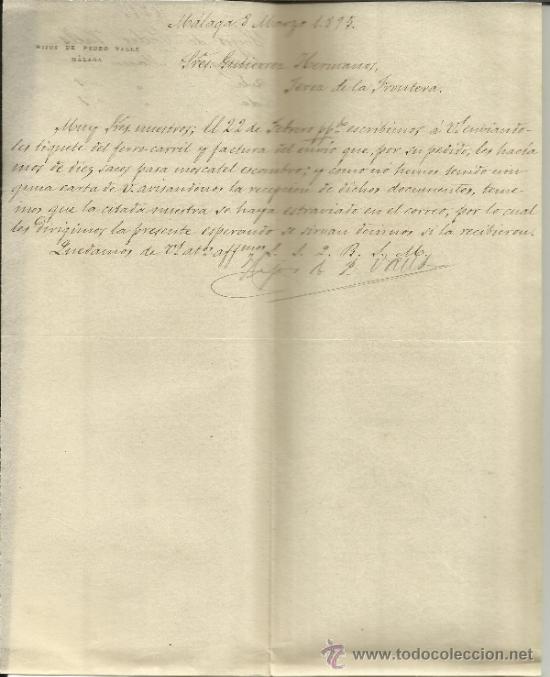 Málaga 8 Marzo 1.895.
HIJOS DE PEDRO VALLS
MÁLAGA
Sres. Gutierrez Hermanos,
Jerez de la Frontera.
Muy Sres. nuestros; El 22 de Febrero pp.do escribimos á Vs. enviando-
les tiquete del ferro-carril y factura del envio que, por su pedido, les hacia-
mos de diez sacos para moscatel escombro; y como no hemos tenido nin-
guna carta de V. avisandonos la recepcion de dichos documentos, teme-
mos que la citada nuestra se haya estraviado en el correo, por lo cual
les dirigimos la presente esperando se sirvan decirnos si la recibieron.
Quedamos de Vs. ats. affmos. S. S. Q. B. S. M.
Hijos de P. Valls
todocoleccion
www.todocoleccion.net